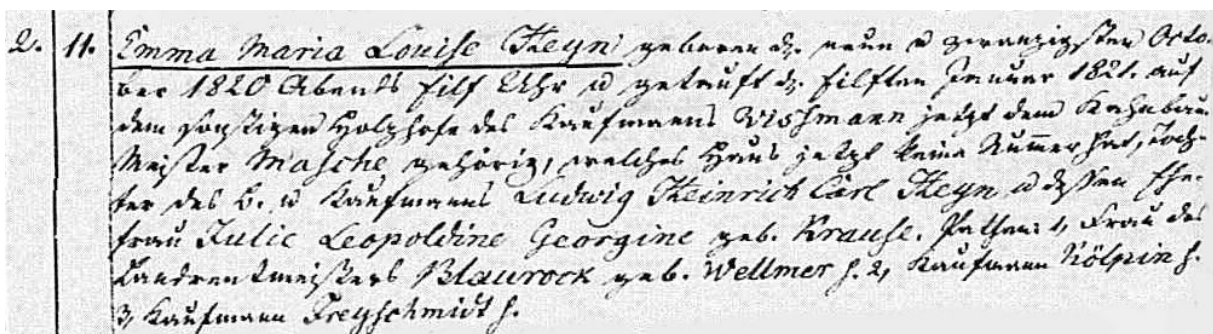 2. 11. Emma Maria Louise Heyn geboren d. neun u zwanzigsten Octo-
ber 1820 Abends Eilf Uhr u getauft d. Eilften Januar 1821. auf
dem sonstigen Holzhofe des Kaufmanns Wissmann jetzt dem Kahnbau
Meister Masche gehörig, welches Haus jetzt keine Nummer hat, Toch-
ter des B. u Kaufmanns Ludwig Heinrich Carl Heyn u dessen Ehe-
frau Julie Leopoldine Georgine geb. Krause. Pathen: 1, Frau des
Landrentmeisters Blaurock geb. Wellmer h. 2, Kaufmann Kölpin h.
3, Kaufmann Freyschmidt h.